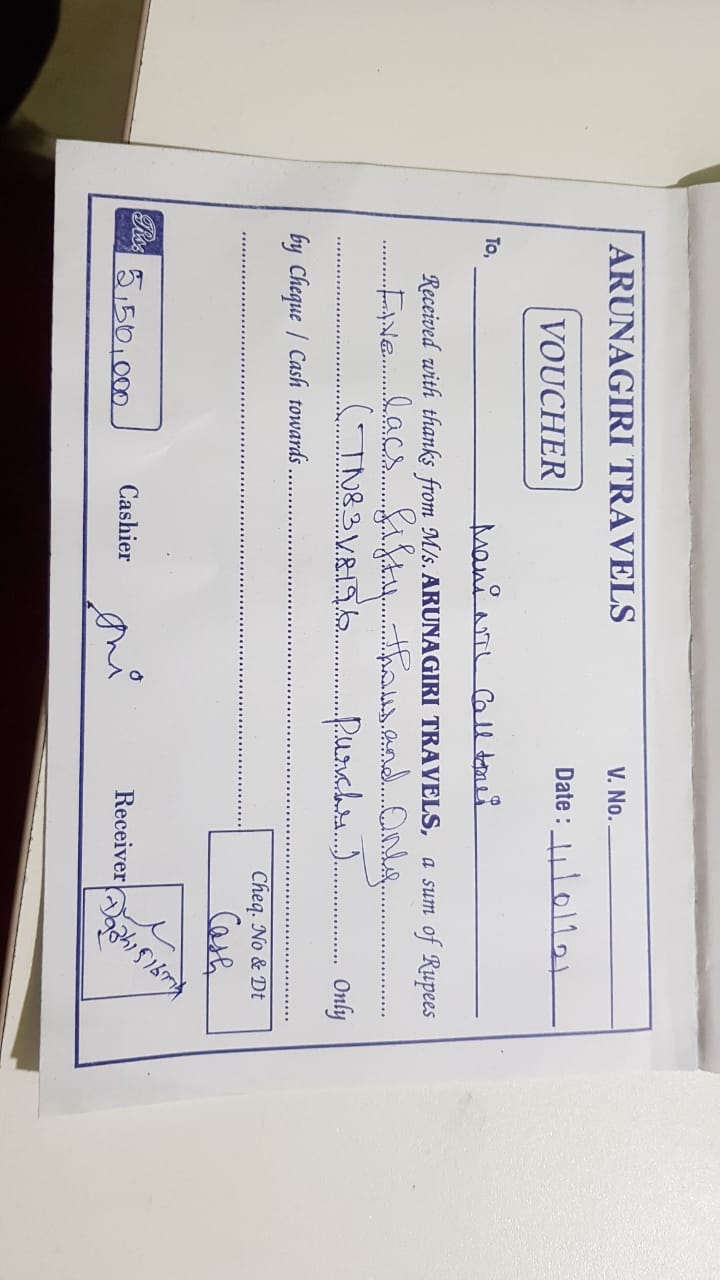 ARUNAGIRI TRAVELS
V. No.
VOUCHER
Date : 11/01/21
To, Mani NTL
Received with thanks from M/s. ARUNAGIRI TRAVELS, a sum of Rupees
Five lacs fifty thousand Only
(TN83V8196 Purches) Only
by Cheque / Cash towards
Cheq. No & Dt
Cash
Rs. 5,50,000 Cashier Receiver